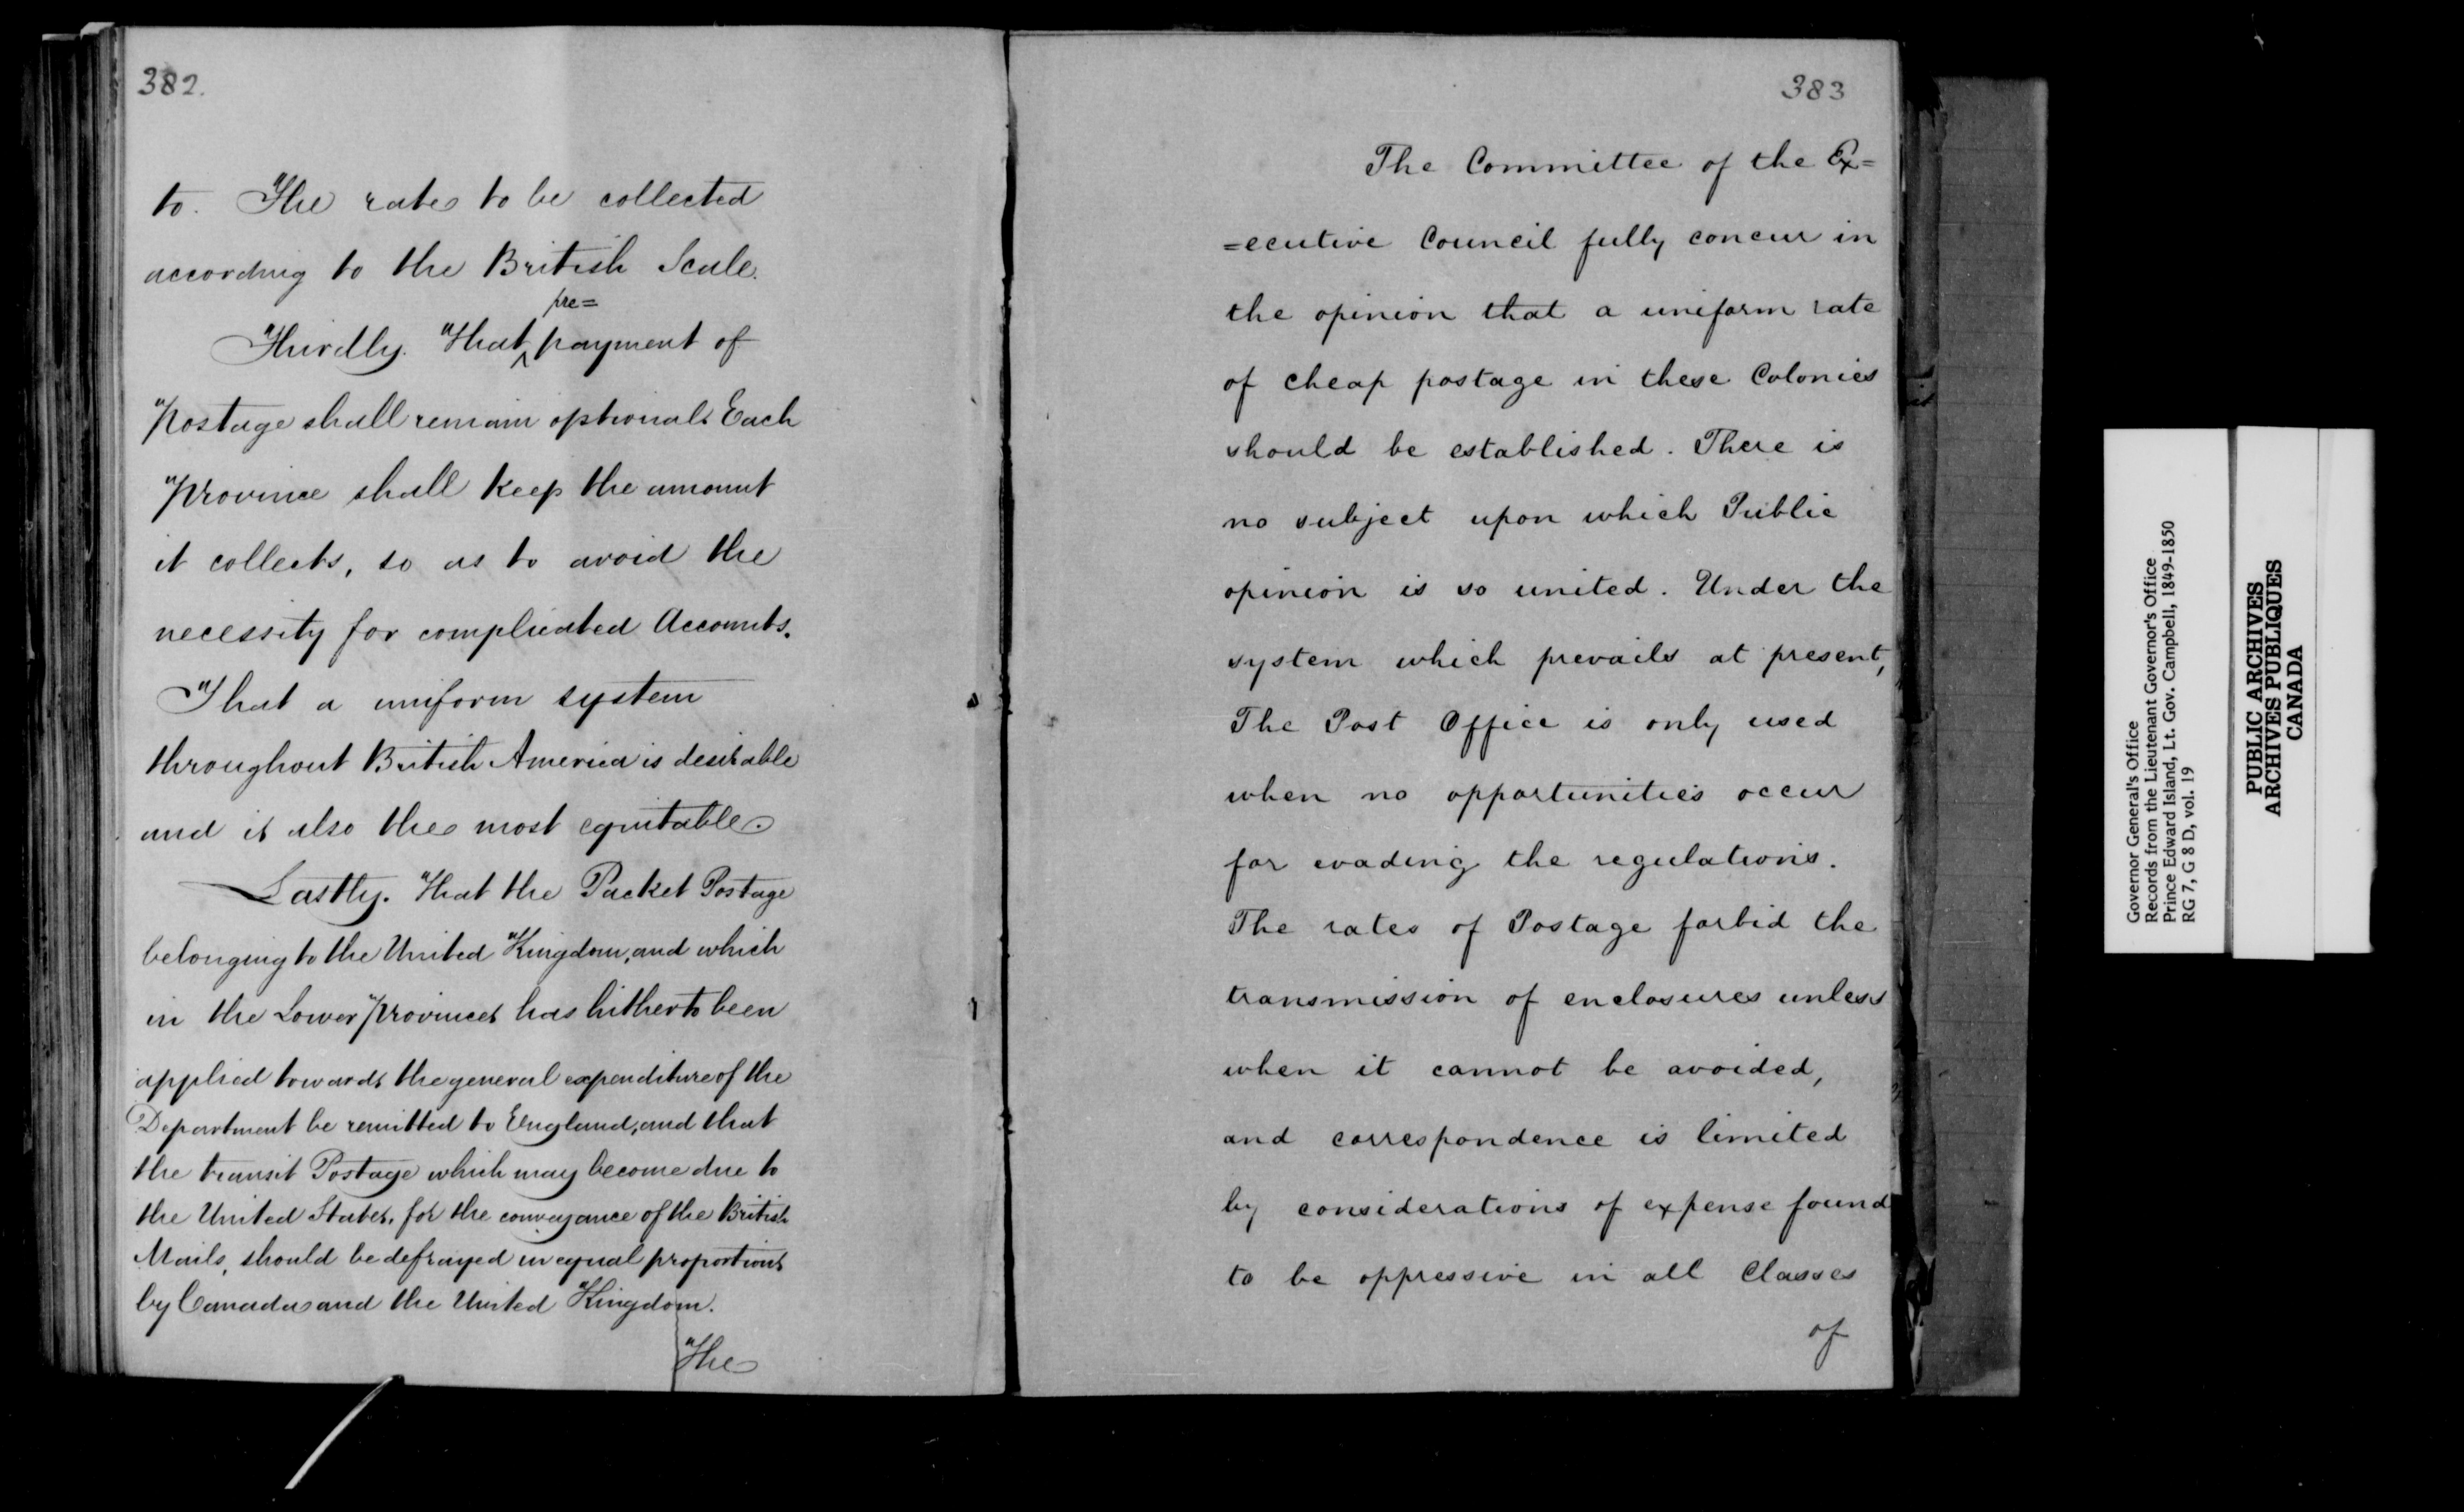 382.
to. The rates to be collected
according to the British Scale.
Thirdly. That pre= payment of
Postage shall remain optional & Each
Province shall keep the amount
it collects, so as to avoid the
necessity for complicated Accounts.
That a uniform system
throughout British America is desirable
and is also the most equitable.
Lastly. That the Packet Postage
belonging to the United Kingdom, and which
in the Lower Provinces has hitherto been
applied towards the general expenditure of the
Department be remitted to England, and that
the transit Postage which may become due to
the United States, for the conveyance of the British
Mails, should be defrayed in equal proportions
by Canada and the United Kingdom.
The
383
The Committee of the Ex=
=ecutive Council fully concur in
the opinion that a uniform rate
of cheap postage in these Colonies
should be established. There is
no subject upon which Public
opinion is so united. Under the
system which prevails at present,
The Post Office is only used
when no opportunities occur
for evading the regulations.
The rates of Postage forbid the
transmission of enclosures unless
when it cannot be avoided,
and correspondence is limited
by considerations of expense found
to be oppressive in all Classes
of
Governor General's Office
Records from the Lieutenant Governor's Office
Prince Edward Island, Lt. Gov. Campbell, 1849-1850
RG 7, G 8 D, vol. 19
PUBLIC ARCHIVES
ARCHIVES PUBLIQUES
CANADA